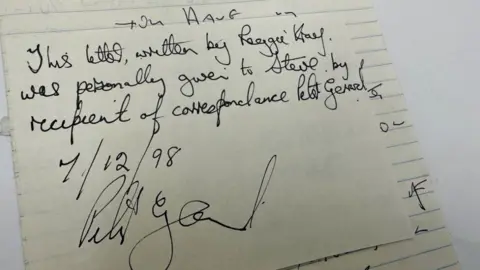 YOU HAVE
This letter, written by Reggie Kray.
was personally given to Steve by
recipient of correspondance Pete Gerrard
7/12/98